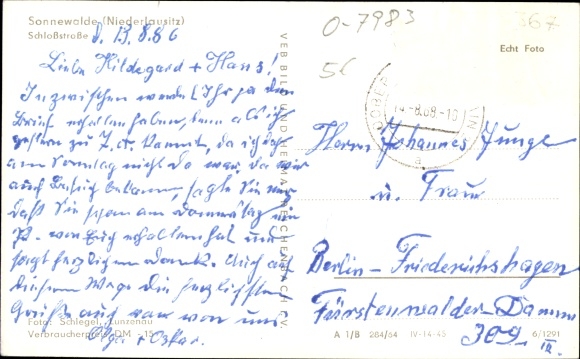 Sonnewalde (Niederlausitz)
Schloßstraße
d. 13.8.86
O-7983
367
Echt Foto
56
Liebe Hildegard + Hans!
Inzwischen werdet Ihr ja den
Brief erhalten haben, denn als ich
gestern zu
kam, da ich ja
am Sonntag nicht da war, da wir
auf Besuch bekamen, sagte Sie mir
daß Sie schon am Donnerstag ein
P. von Euch erhalten hat und
sagt herzlichen Dank. Auch auf
diesem Wege die herzlichsten
Grüße auch von uns
Olga + Oskar.
VEB BILD UND HEIMAT REICHENBACH I. V.
14.-8.68.-10
a
Herrn Johannes Junge
u. Frau
Berlin-Friedrichshagen
Fürstenwalder-Damm
309
III.
Foto: Schlegel, Luntenau
Verbraucherpreis DM -,15
A 1/B 284/64 IV-14-45 6/1291